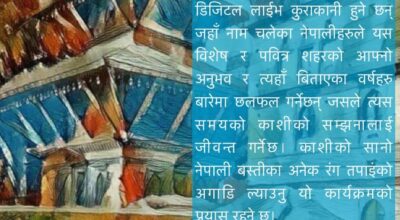 डिजिटल लाईभ कुराकानी हुने छन्
जहाँ नाम चलेका नेपालीहरुले यस
विशेष र पवित्र शहरको आफ्नो
अनुभव र त्यहाँ बिताएका वर्षहरु
बारेमा छलफल गर्नेछन् जसले त्यस
समयको काशीको सम्झनालाई
जीवन्त गर्नेछ। काशीको सानो
नेपाली बस्तीका अनेक रंग तपाइंको
अगाडि ल्याउनु यो कार्यक्रमको
प्रयास रहने छ।